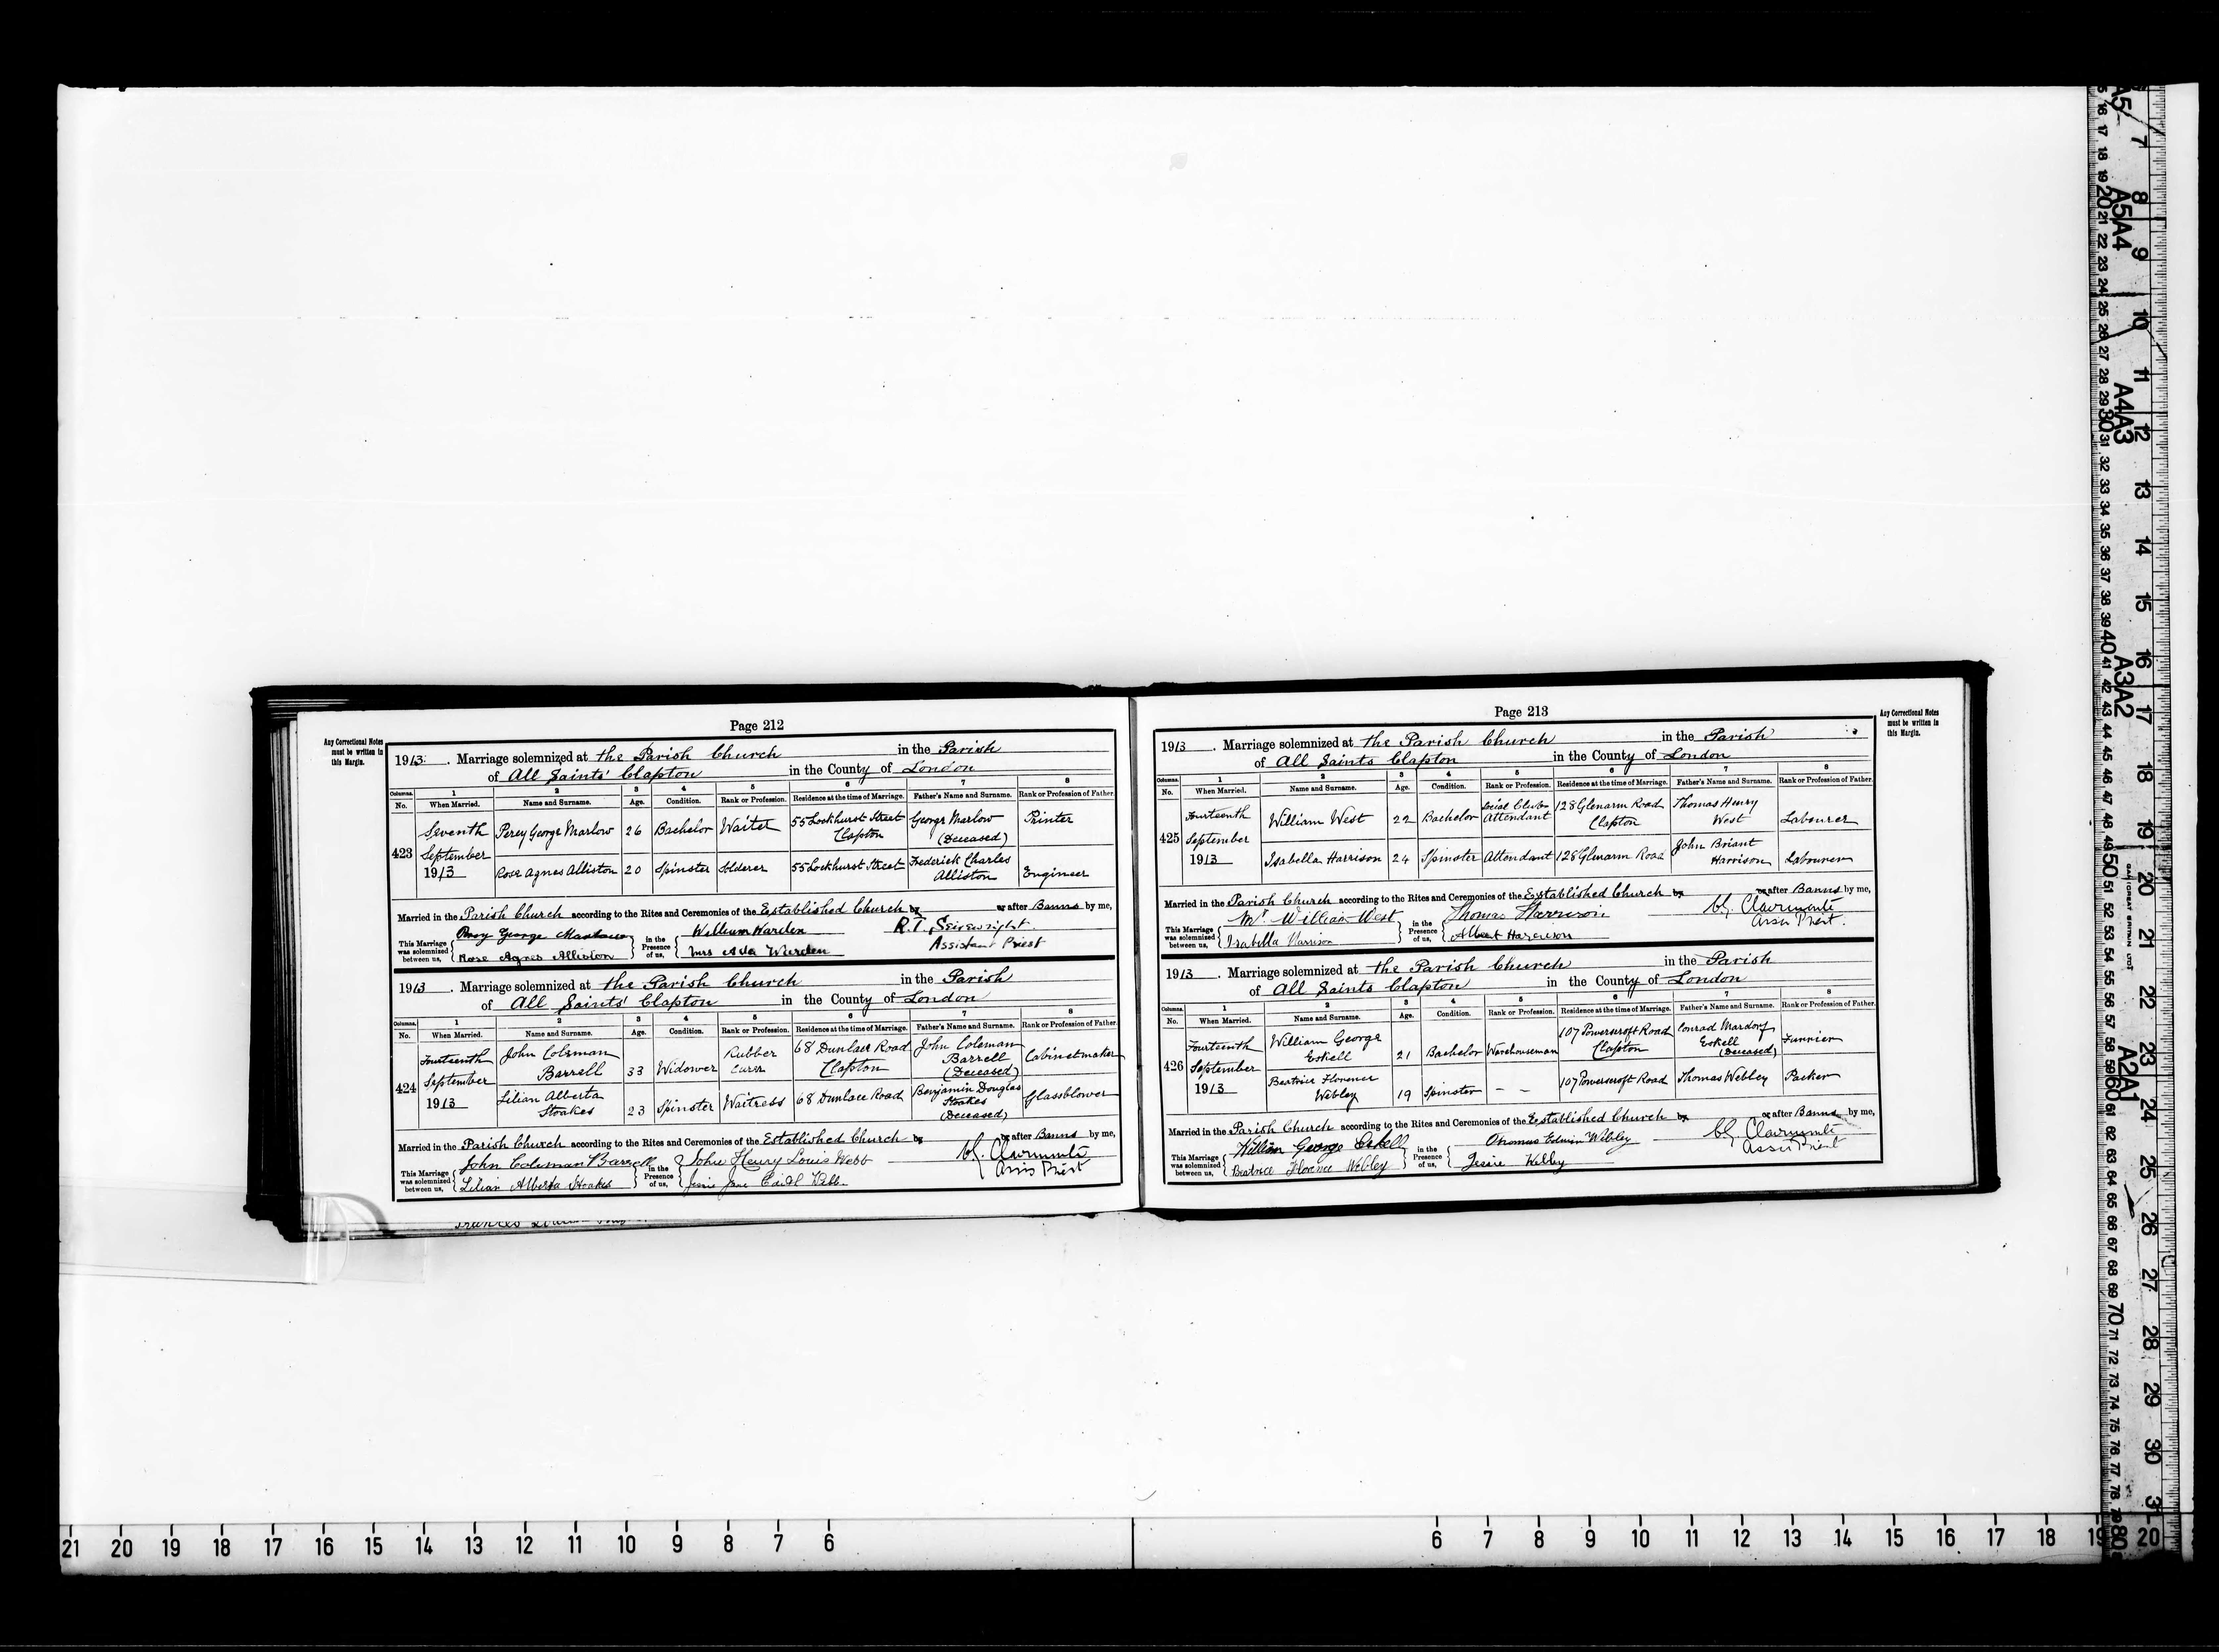 Page 212
Any Correctional Notes
must be written in
this Margin.
1913. Marriage solemnized at the Parish Church in the Parish
of All Saints' Clapton in the County of London
Columns. 1 2 3 4 5 6 7 8
No. When Married. Name and Surname. Age. Condition. Rank or Profession. Residence at the time of Marriage. Father's Name and Surname. Rank or Profession of Father.
423 Seventh September 1913 Percy George Marlow 26 Bachelor Waiter 55 Lockhurst Street Clapton George Marlow (Deceased) Printer
Rose Agnes Alliston 20 Spinster Solderer 55 Lockhurst Street Frederick Charles Alliston Engineer
Married in the Parish Church according to the Rites and Ceremonies of the Established Church by or after Banns by me,
This Marriage was solemnized between us, Percy George Marlow in the Presence of us, William Warden R. T. Seivewright
Rose Agnes Alliston Mrs Ada Warden Assistant Priest
1913. Marriage solemnized at the Parish Church in the Parish
of All Saints' Clapton in the County of London
Columns. 1 2 3 4 5 6 7 8
No. When Married. Name and Surname. Age. Condition. Rank or Profession. Residence at the time of Marriage. Father's Name and Surname. Rank or Profession of Father.
424 Fourteenth September 1913 John Coleman Barrell 33 Widower Rubber Curer 68 Dunlace Road Clapton John Coleman Barrell (Deceased) Cabinetmaker
Lilian Alberta Stoakes 23 Spinster Waitress 68 Dunlace Road Benjamin Douglas Stoakes (Deceased) Glassblower
Married in the Parish Church according to the Rites and Ceremonies of the Established Church by or after Banns by me,
This Marriage was solemnized between us, John Coleman Barrell in the Presence of us, John Henry Louis Webb
Lilian Alberta Stoakes Jessie Jane Webb Assis Priest
Page 213
Any Correctional Notes
must be written in
this Margin.
1913. Marriage solemnized at the Parish Church in the Parish
of All Saints Clapton in the County of London
Columns. 1 2 3 4 5 6 7 8
No. When Married. Name and Surname. Age. Condition. Rank or Profession. Residence at the time of Marriage. Father's Name and Surname. Rank or Profession of Father.
425 Fourteenth September 1913 William West 22 Bachelor Social Club Attendant 128 Glenarm Road Clapton Thomas Henry West Labourer
Isabella Harrison 24 Spinster Attendant 128 Glenarm Road John Briant Harrison Labourer
Married in the Parish Church according to the Rites and Ceremonies of the Established Church by or after Banns by me,
This Marriage was solemnized between us, Mr. William West in the Presence of us, Thomas Harrison
Isabella Harrison Albert Assis Priest.
1913. Marriage solemnized at the Parish Church in the Parish
of All Saints Clapton in the County of London
Columns. 1 2 3 4 5 6 7 8
No. When Married. Name and Surname. Age. Condition. Rank or Profession. Residence at the time of Marriage. Father's Name and Surname. Rank or Profession of Father.
426 Fourteenth September 1913 William George Eskell 21 Bachelor Warehouseman 107 Powerscroft Road Clapton Conrad Mardorf Eskell (Deceased) Furrier
Beatrice Florence Webley 19 Spinster – – 107 Powerscroft Road Thomas Webley Packer
Married in the Parish Church according to the Rites and Ceremonies of the Established Church by or after Banns by me,
This Marriage was solemnized between us, William George Eskell in the Presence of us, Thomas Edwin Webley
Beatrice Florence Webley Jessie Webley Assis Priest
21 20 19 18 17 16 15 14 13 12 11 10 9 8 7 6 6 7 8 9 10 11 12 13 14 15 16 17 18 19 20